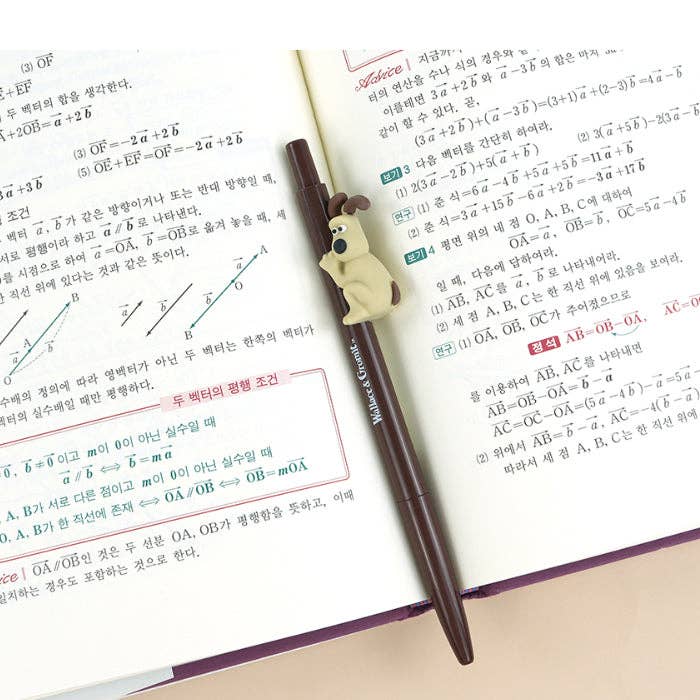 (3) OF
E+EF
두 벡터의 합을 생각한다.
A+2OB=a+2b
(3) OF=-2a+2b
(5) OE+EF=OF=-2a+2b
3a+3b
조건
벡터 a, b가 같은 방향이거나 또는 반대 방향일 때,
서로 평행이라 하고 a∥b로 나타낸다.
를 시점으로 하여 a=OA, b=OB로 옮겨 놓을 때, 세
한 직선 위에 있다는 것과 같은 뜻이다.
a
b
A
B
O
a
b
a
b
A
O
B
수배의 정의에 따라 영벡터가 아닌 두 벡터는 한쪽의 벡터가
벡터의 실수배일 때만 평행하다.
두 벡터의 평행 조건
≠0, b≠0이고 m이 0이 아닌 실수일 때
a∥b ⟺ b=ma
O, A, B가 서로 다른 점이고 m이 0이 아닌 실수일 때
O, A, B가 한 직선에 존재 ⟺ OA∥OB ⟺ OB=mOA
vice | OA∥OB인 것은 두 선분 OA, OB가 평행함을 뜻하고, 이때
일치하는 경우도 포함하는 것으로 한다.
Wallace & Gromit™
Advice | 지금까지
터의 연산을 수나 식의 경우와
의 합은 마치 3a
이를테면 3a+2b와 a-3b
같이 할 수 있다. 곧,
(3a+2b)+(a-3b)=(3+1)a+(2-3)b=4a-b
보기 3 다음 벡터를 간단히 하여라.
(1) 2(3a-2b)+5(a+b)
(2) 3(a+5b)-2(3a-b
연구 (1) 준 식=6a-4b+5a+5b=11a+b
(2) 준 식=3a+15b-6a+2b=-3a+17b
보기 4 평면 위의 네 점 O, A, B, C에 대하여
OA=a, OB=b, OC=5a-4b
일 때, 다음에 답하여라.
(1) AB, AC를 a, b로 나타내어라.
(2) 세 점 A, B, C는 한 직선 위에 있음을 보여라.
연구 (1) OA, OB, OC가 주어졌으므로
정석 AB=OB-OA, AC=O
를 이용하여 AB, AC를 나타내면
AB=OB-OA=b-a
AC=OC-OA=(5a-4b)-a=5a
(2) 위에서 AB=b-a, AC=-4(b-a)
따라서 세 점 A, B, C는 한 직선 위에